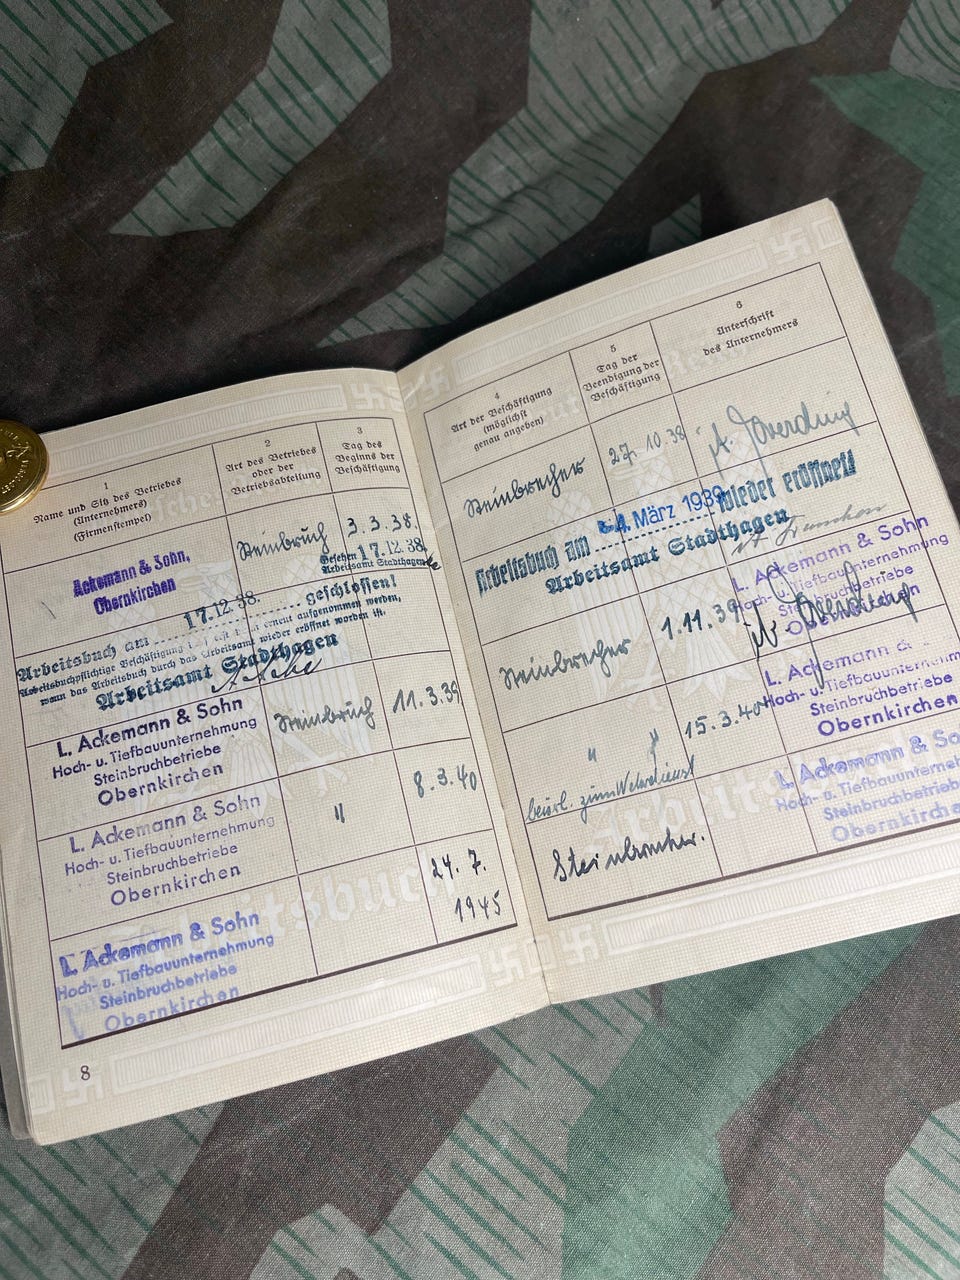 1
Name und Sitz des Betriebes
(Unternehmers)
(Firmenstempel)
2
Art des Betriebes
oder der
Betriebsabteilung
3
Tag des
Beginns der
Beschäftigung
Ackemann & Sohn,
Obernkirchen
Steinbruch
3.3.38.
Gesehen 17.12.38
Arbeitsamt Stadthagen
Arbeitsbuch am 17.12.38. geschlossen!
Arbeitsbuchpflichtige Beschäftigung darf erst erneut aufgenommen werden,
wenn das Arbeitsbuch durch das Arbeitsamt wieder eröffnet worden ist,
Arbeitsamt Stadthagen
L. Ackemann & Sohn
Hoch- u. Tiefbauunternehmung
Steinbruchbetriebe
Obernkirchen
Steinbruch
11.3.39
L. Ackemann & Sohn
Hoch- u. Tiefbauunternehmung
Steinbruchbetriebe
Obernkirchen
"
8.3.40
L. Ackemann & Sohn
Hoch- u. Tiefbauunternehmung
Steinbruchbetriebe
Obernkirchen
24.7.
1945
8
4
Art der Beschäftigung
(möglichst
genau angeben)
5
Tag der
Beendigung der
Beschäftigung
6
Unterschrift
des Unternehmers
Steinbrecher
27.10.38
Arbeitsbuch am 4. März 1939 wieder eröffnet!
Arbeitsamt Stadthagen
L. Ackemann & Sohn
Hoch- u. Tiefbauunternehmung
Steinbruchbetriebe
Obernkirchen
Steinbrecher
1.11.39
L. Ackemann &
Hoch- u. Tiefbauunternehm
Steinbruchbetriebe
Obernkirchen
"
15.3.40
beurl. zum Wehrdienst
L. Ackemann & So
Hoch- u. Tiefbauunterneh
Steinbruchbetriebe
Obernkirchen
Steinbrucher.
Arbeitsbuch